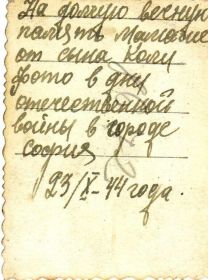 На долгую вечную
память мамаше
от сына Коли
фото в дни
отечественной
войны в городе
София
23/X-44 года.